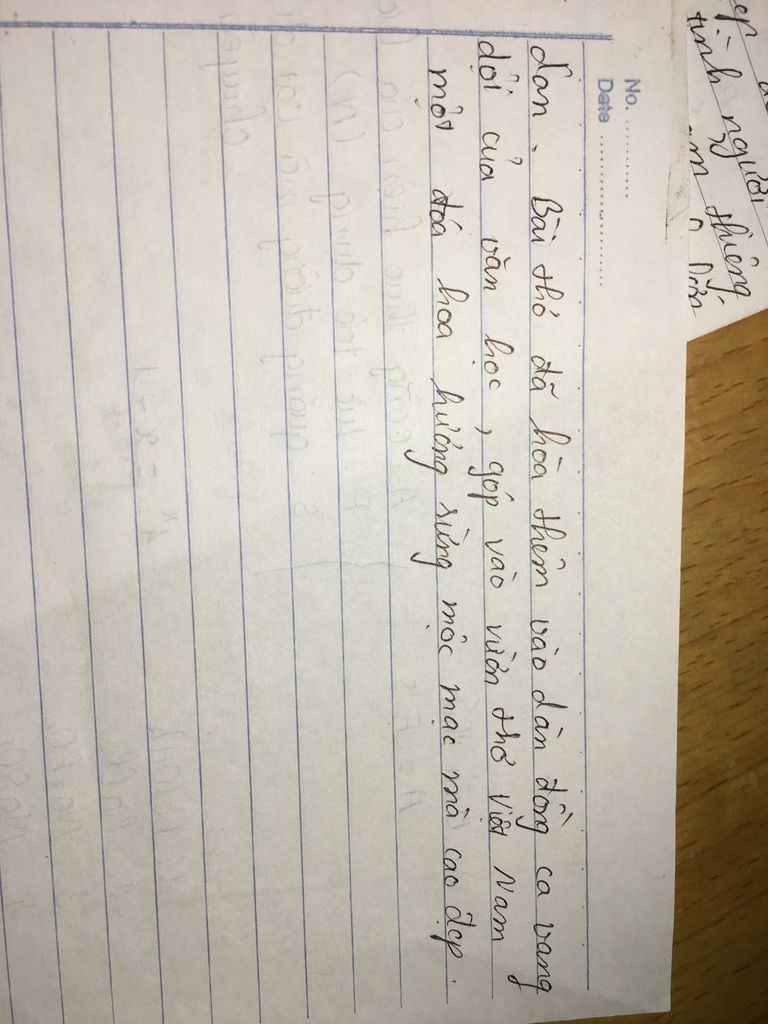 No. ...........
Date ......................
dân. Bài thơ đã hòa thêm vào dàn đồng ca vang
dội của văn học, góp vào vườn thơ Việt Nam
một đoá hoa hương rừng mộc mạc mà cao đẹp.
tình người
thiêng